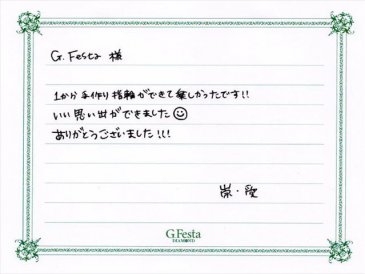 G. Festa 様
1から手作り指輪ができて楽しかったです!!
いい思い出ができました
ありがとうございました!!!
崇・愛
G.Festa
DIAMOND